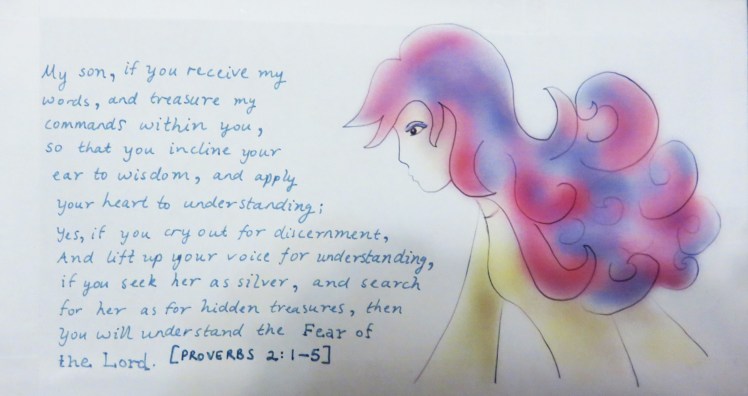 My son, if you receive my
words, and treasure my
commands within you,
so that you incline your
ear to wisdom, and apply
your heart to understanding;
Yes, if you cry out for discernment,
And lift up your voice for understanding,
if you seek her as silver, and search
for her as for hidden treasures, then
you will understand the Fear of
the Lord. [PROVERBS 2:1-5]